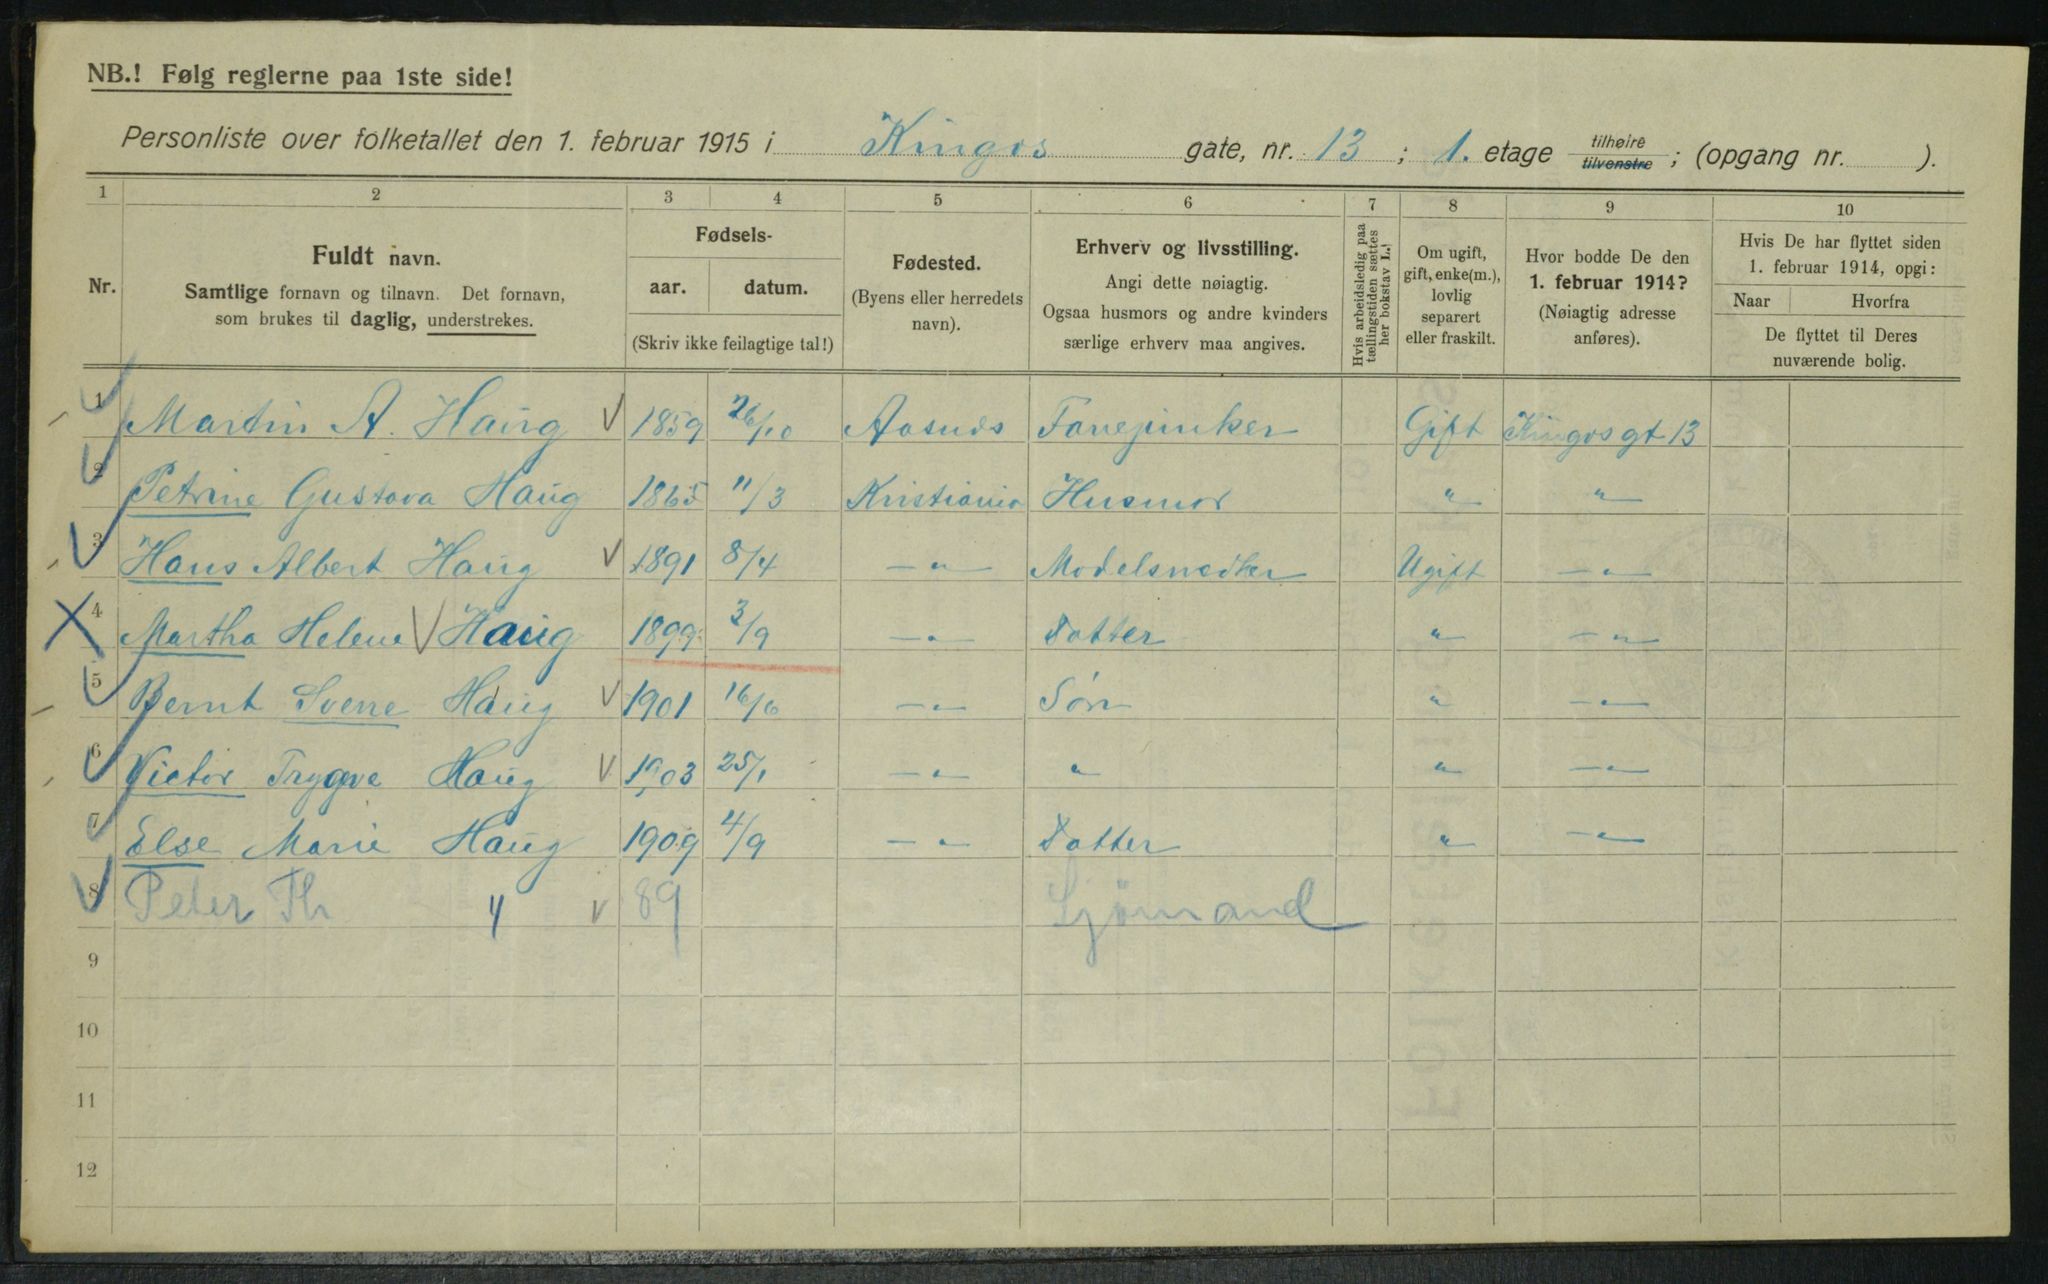 NB.! Følg reglerne paa 1ste side!
Personliste over folketallet den 1. februar 1915 i Kingos gate, nr. 13 ; 1. etage tilhøire tilvenstre ; (opgang nr. ).
1 2 3 4 5 6 7 8 9 10
Nr.
Fuldt navn.
Samtlige fornavn og tilnavn. Det fornavn,
som brukes til daglig, understrekes.
Fødsels-
aar. datum.
(Skriv ikke feilagtige tal!)
Fødested.
(Byens eller herredets
navn).
Erhverv og livsstilling.
Angi dette nøiagtig.
Ogsaa husmors og andre kvinders
særlige erhverv maa angives.
Hvis arbeidsledig paa
tællingstiden sættes
her bokstav L.!
Om ugift,
gift, enke(m.),
lovlig
separert
eller fraskilt.
Hvor bodde De den
1. februar 1914?
(Nøiagtig adresse
anføres).
Hvis De har flyttet siden
1. februar 1914, opgi:
Naar Hvorfra
De flyttet til Deres
nuværende bolig.
1 Martin A. Haug 1859 26/10 Aasnes Gift Kingosgt 13
2 Petrine Gustava Haug 1865 11/3 Kristiania Husmor " "
3 Hans Albert Haug 1891 8/4 — " — Modelsnedker Ugift — " —
4 Martha Helene Haug 1899 3/9 — " — Datter " — " —
5 Bernt Sverre Haug 1901 — " — Søn " — " —
6 Victor Trygve Haug 1903 25/1 — " — " " — " —
7 Else Marie Haug 1909 4/9 — " — Datter " — " —
8 Peter Th " 89 Sjømand
9
10
11
12